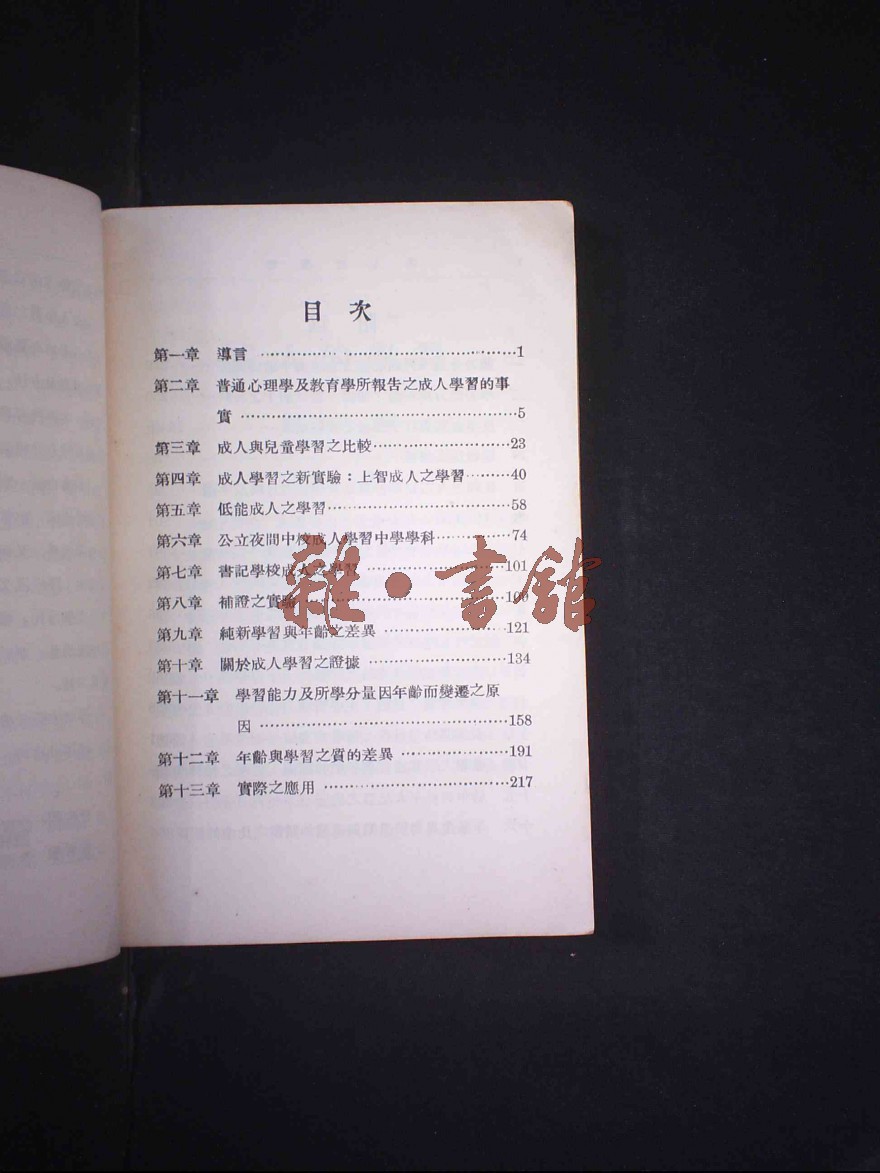 目次
第一章 導言 …………………………………1
第二章 普通心理學及教育學所報告之成人學習的事
實 …………………………………5
第三章 成人與兒童學習之比較………………23
第四章 成人學習之新實驗：上智成人之學習………40
第五章 低能成人之學習………………………58
第六章 公立夜間中校成人學習中學學科…………74
第七章 書記學校成人之學習 …………………101
第八章 補證之實驗
第九章 純新學習與年齡之差異 ………………121
第十章 關於成人學習之證據 …………………134
第十一章 學習能力及所學分量因年齡而變遷之原
因 …………………………………158
第十二章 年齡與學習之質的差異 ……………191
第十三章 實際之應用 …………………………217
雜·書館